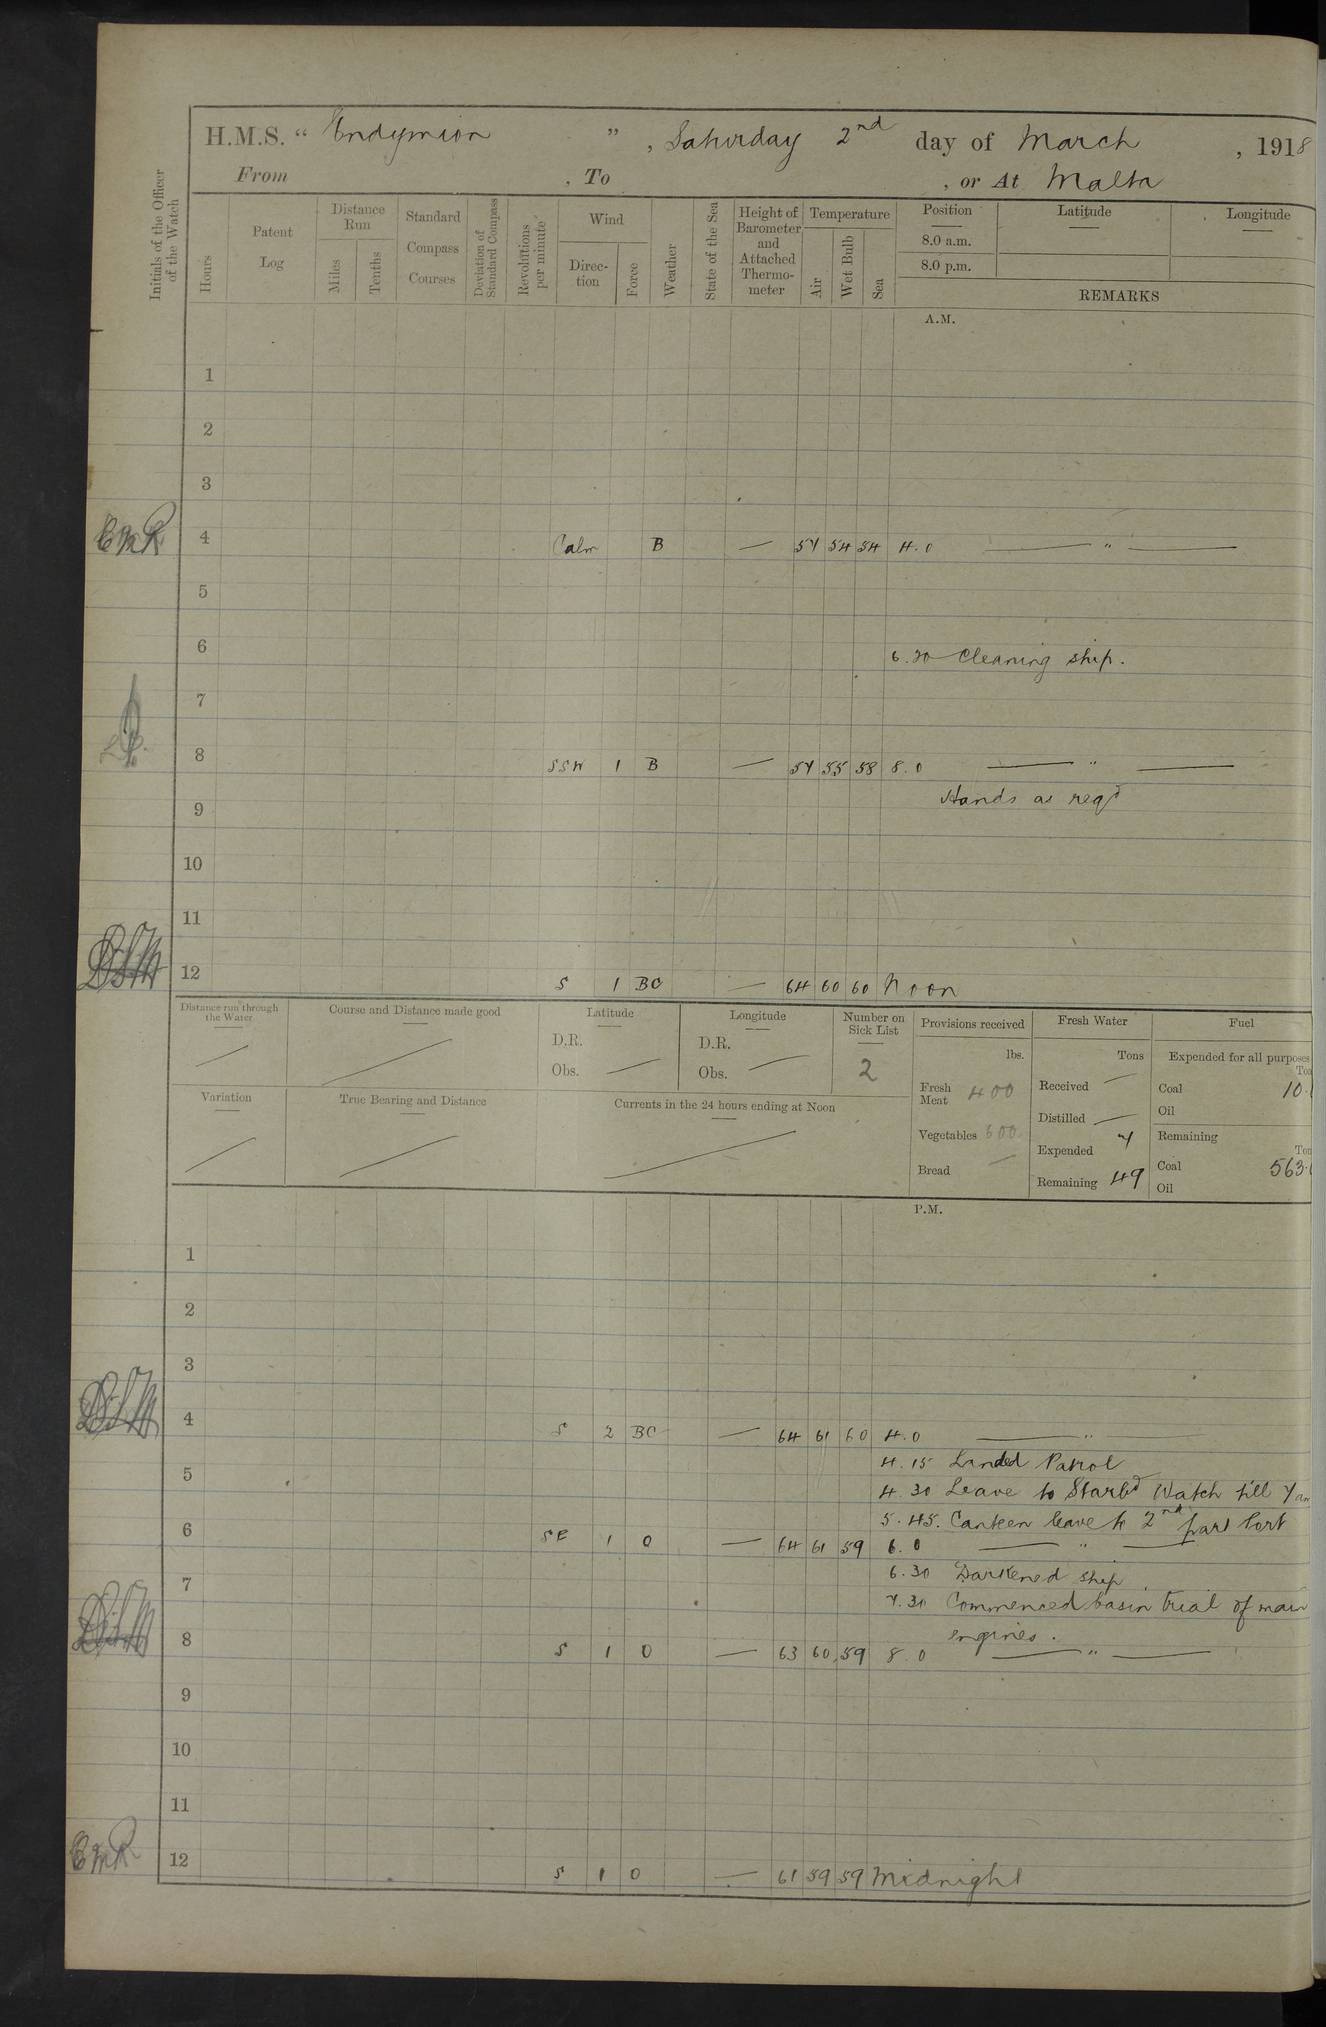 H.M.S. “ Endymion ”, Saturday 2nd day of March , 1918
From , To , or At Malta
Initials of the Officer of the Watch
Hours
Patent Log
Distance Run
Miles
Tenths
Standard Compass Courses
Deviation of Standard Compass
Revolutions per minute
Wind
Direc-tion
Force
Weather
State of the Sea
Height of Barometer and Attached Thermo-meter
Temperature
Air
Wet Bulb
Sea
Position
8.0 a.m.
8.0 p.m.
Latitude
Longitude
REMARKS
A.M.
1
2
3
EMR 4 Calm B — 57 54 54 4.0 — " —
5
6
6.30 Cleaning ship.
7
8 SSW 1 B — 57 55 58 8.0 — " —
Hands as reqd
9
10
11
12 S 1 BC — 64 60 60 Noon
Distance run through the Water
Course and Distance made good
Latitude
D.R.
Obs. —
Longitude
D.R.
Obs. —
Number on Sick List
2
Variation
True Bearing and Distance
Currents in the 24 hours ending at Noon
Provisions received
lbs.
Fresh Meat 400
Vegetables 600
Bread —
Fresh Water
Tons
Received —
Distilled —
Expended 7
Remaining 49
Fuel
Expended for all purposes
Coal 10.
Oil
Remaining
Coal 563.
Oil
P.M.
1
2
3
4 S 2 BC — 64 61 60 4.0 — " —
4.15 Landed Patrol
5
4.30 Leave to Starbd Watch till 7 am
5.45. Canteen leave to 2nd part Port
6 SE 1 O — 64 61 59 6.0 — " —
6.30 Darkened ship
7
7.30 Commenced basin trial of main
engines.
8 S 1 O — 63 60 59 8.0 — " —
9
10
11
EMR 12 S 1 O — 61 59 59 Midnight